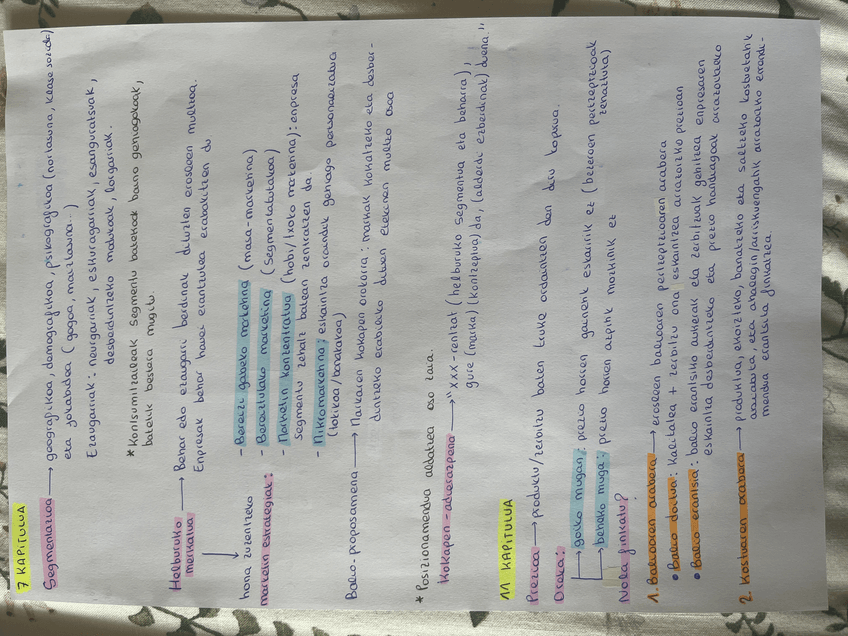 7 KAPITULUA
Segmentazioa → geografikoa, demografikoa, psikografikoa (nortasuna, klase soziala)
eta jokabidea (gogoa, maiztasuna..)
Ezaugarriak: neurgarriak, eskuragarriak, esanguratsuak,
desberdintzeko modukoak, lorgarriak.
* Kontsumitzaileak segmentu batekoak baino gehiagokoak,
batetik bestera mugitu.
Helburuko → Behar edo ezaugarri berdinak dituzten erosleen multzoa.
merkatua Enpresak behar hauei erantzutea erabakitzen du
hona zuzentzeko - Bereizi gabeko marketina (masa-marketina)
marketin estrategiak: - Bereizitutako marketina (Segmentatutakoa)
- Marketin kontzentratua (hobi/txoko marketina): enpresa
segmentu zehatz batean zentratzen da
- Mikromarketina: eskaintza oraindik gehiago personalizatua
(lokikoa/banakakoa)
Balio-proposamena → Markaren kokapen orokorra: markak kokatzeko eta desber-
dintzeko erabiliko dituen etekinen multzo osoa
* Posizionamendua aldatzea oso zaila.
Kokapen-adierazpena → "xxx-rentzat (helburuko segmentua eta beharra),
gure (marka) (kontzeptua) da, (alderdi ezberdinak) duena."
11 KAPITULUA
Prezioa → produktu/zerbitzu baten truke ordaintzen den diru kopurua.
Osoka:
→ goiko mugan: prezio horien gainetik eskaririk ez (bezeroen pertzepzioak
→ beheko muga: prezio horien azpitik mozkinik ez zenaituta)
Nola finkatu?
1. Balioaren arabera → erosleen balioaren pertzepzioaren arabera
• Balio dauna: Kalitatea + zerbitzu ona eskaintzea arrazoizko prezioan
• Balio erantsia: balio erantsiko aukerak eta zerbitzuak gehitzea enpresaren
eskaintza desberdintzeko eta prezio handiagoak arrazoitzeko
2. Kostuaren arabera → produktua, ekoizteko, banatzeko eta saltzeko kostuetatik
arabera, eta ahalegin/arriskuengatik arrazoizko errendi-
mendua erantsita finkatzea.